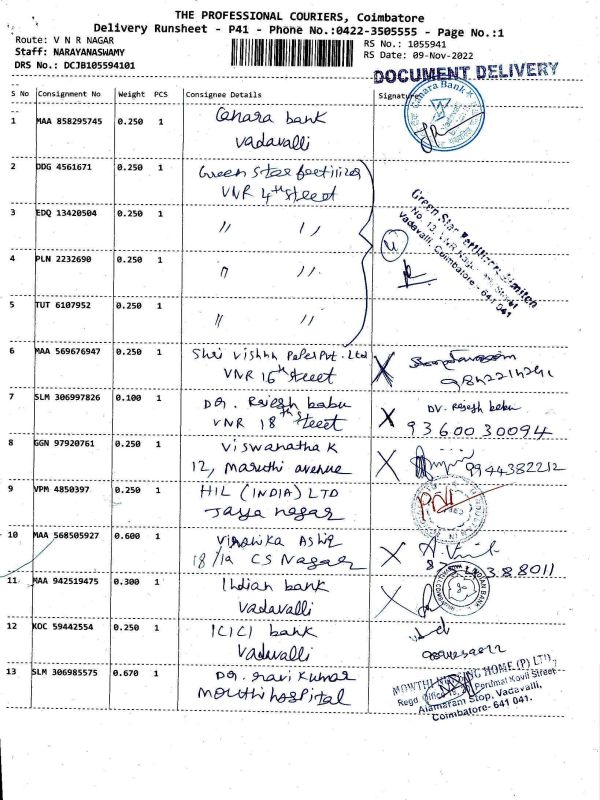 THE PROFESSIONAL COURIERS, Coimbatore
Delivery Runsheet - P41 - Phone No.:0422-3505555 - Page No.:1
Route: V N R NAGAR
Staff: NARAYANASWAMY
DRS No.: DCJB105594101
RS No.: 1055941
RS Date: 09-Nov-2022
DOCUMENT DELIVERY
S No Consignment No Weight PCS Consignee Details Signature
Canara Bank
1 MAA 858295745 0.250 1 Canara bank
Vadavalli
2 DDG 4561671 0.250 1 Green Star fertilizer
VNR 4th street
3 EDQ 13420504 0.250 1 〃 〃
4 PLN 2232690 0.250 1 〃 〃
5 TUT 6107952 0.250 1 〃 〃
Green Star Fertilizers Limited
No. 13, VNR Nagar, Street
Vadavalli, Coimbatore - 641 041
6 MAA 569676947 0.250 1 Shri Vishnu Paper Pvt. Ltd X
VNR 16th street
7 SLM 306997826 0.100 1 Dr. Rajesh babu X DV. Rajesh babu
VNR 18th street 9360030094
8 GGN 97920761 0.250 1 Viswanatha K X
12, Maruthi avenue 9944382212
9 VPM 4850397 0.250 1 HIL (INDIA) LTD
Jaya nagar
10 MAA 568505927 0.600 1 X
18/1a CS Nagar
11 MAA 942519475 0.300 1 Indian bank X
Vadavalli
INDIAN BANK
12 KOC 59442554 0.250 1 ICICI bank
Vadavalli
13 SLM 306985575 0.670 1 Dr. ravi kumar
Mowthi hospital
MOWTHI NURSING HOME (P) LTD,
Regd Office Perumal Kovil Street
Alamaram Stop, Vadavalli,
Coimbatore- 641 041.